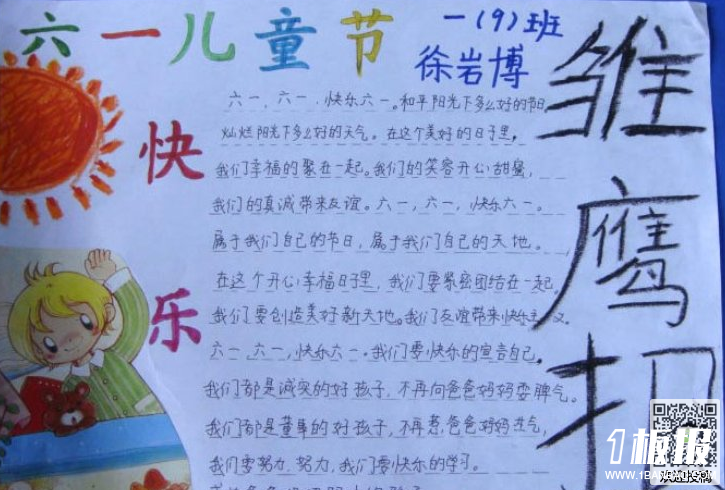 六一儿童节
一(9)班
徐岩博
快乐
六一，六一，快乐六一。和平阳光下多么好的节日，
灿烂阳光下多么好的天气。在这个美好的日子里，
我们幸福的聚在一起。我们的笑容开心甜蜜，
我们的真诚带来友谊。六一，六一，快乐六一。
属于我们自己的节日，属于我们自己的天地。
在这个开心幸福日子里，我们要紧密团结在一起，
我们要创造美好新天地。我们友谊带来快乐
六一，六一，快乐六一。我们要快乐的宣言自己。
我们都是诚实的好孩子，不再向爸爸妈妈耍脾气。
我们都是董事的好孩子，不再惹爸爸妈妈生气，
我们要努力，努力，我们要快乐的学习。
雏鹰
1板报
WWW.1BANBAO.COM